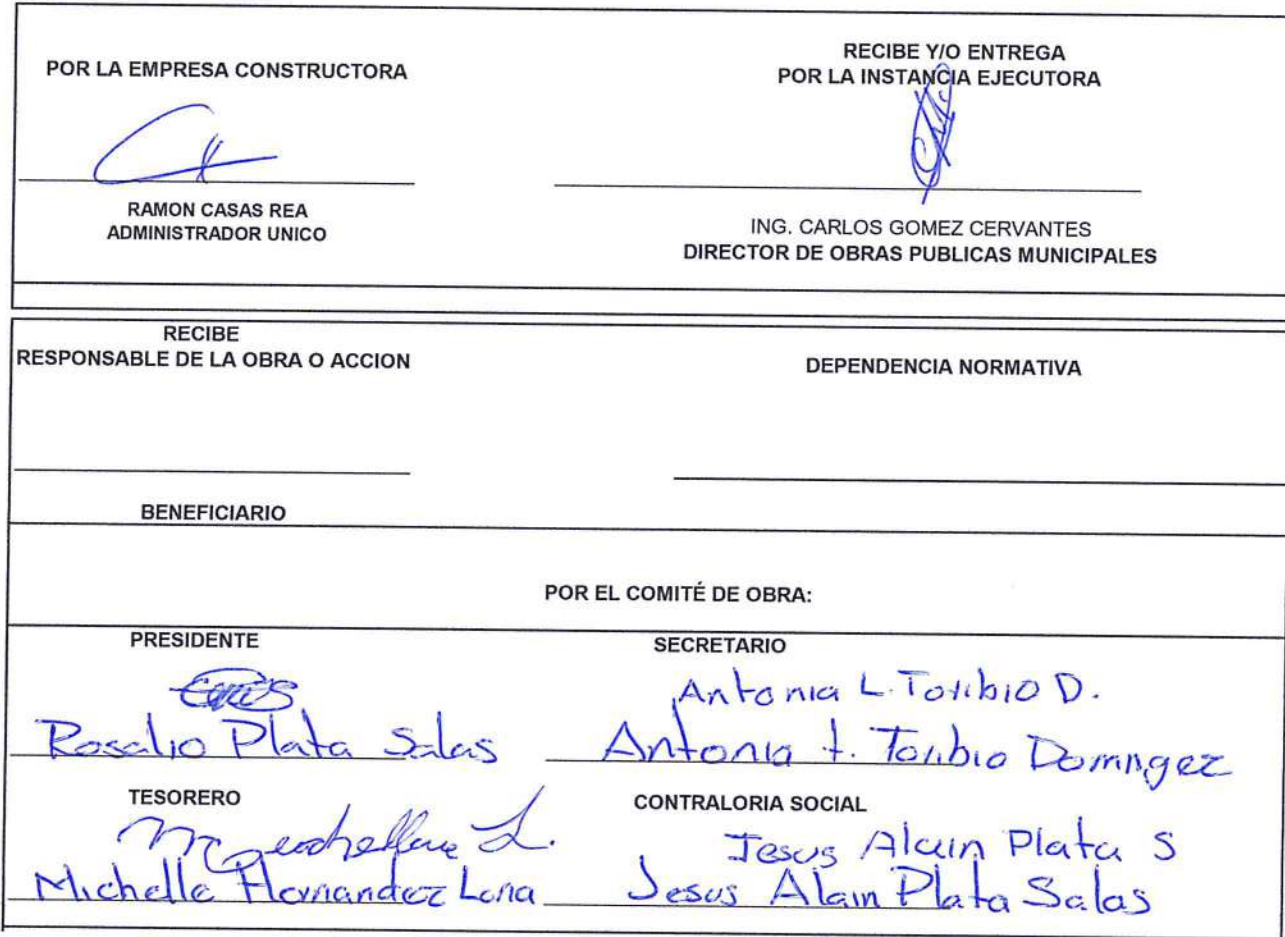 POR LA EMPRESA CONSTRUCTORA
RECIBE Y/O ENTREGA
POR LA INSTANCIA EJECUTORA
RAMON CASAS REA
ADMINISTRADOR UNICO
ING. CARLOS GOMEZ CERVANTES
DIRECTOR DE OBRAS PUBLICAS MUNICIPALES
RECIBE
RESPONSABLE DE LA OBRA O ACCION
DEPENDENCIA NORMATIVA
BENEFICIARIO
POR EL COMITÉ DE OBRA:
PRESIDENTE
Rosalio Plata Salas
SECRETARIO
Antonia L. Toribio D.
Antonia t. Toribio Domngez
TESORERO
L.
Michelle Hernandez Lona
CONTRALORIA SOCIAL
Jesus Alain Plata S
Jesus Alain Plata Salas